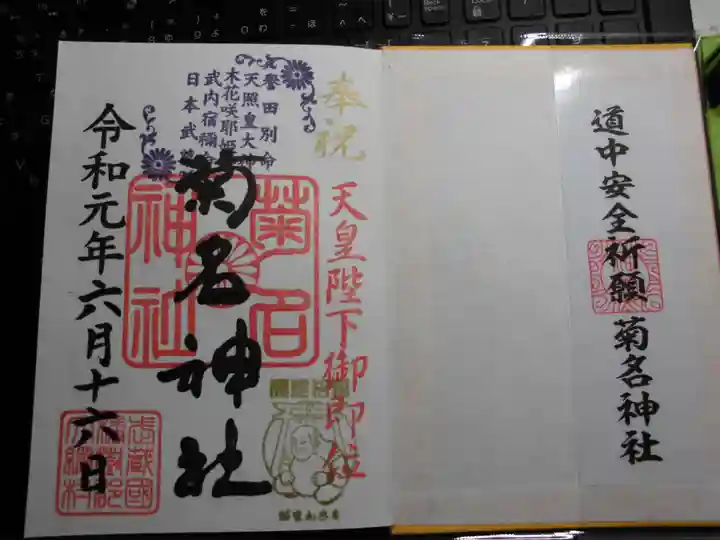 道中安全祈願 菊名神社
奉祝
天皇陛下御即位
誉田別命
天照皇大神
木花咲耶姫
武内宿禰命
日本武尊
菊名神社
菊名
神社
令和元年六月十六日
武蔵國